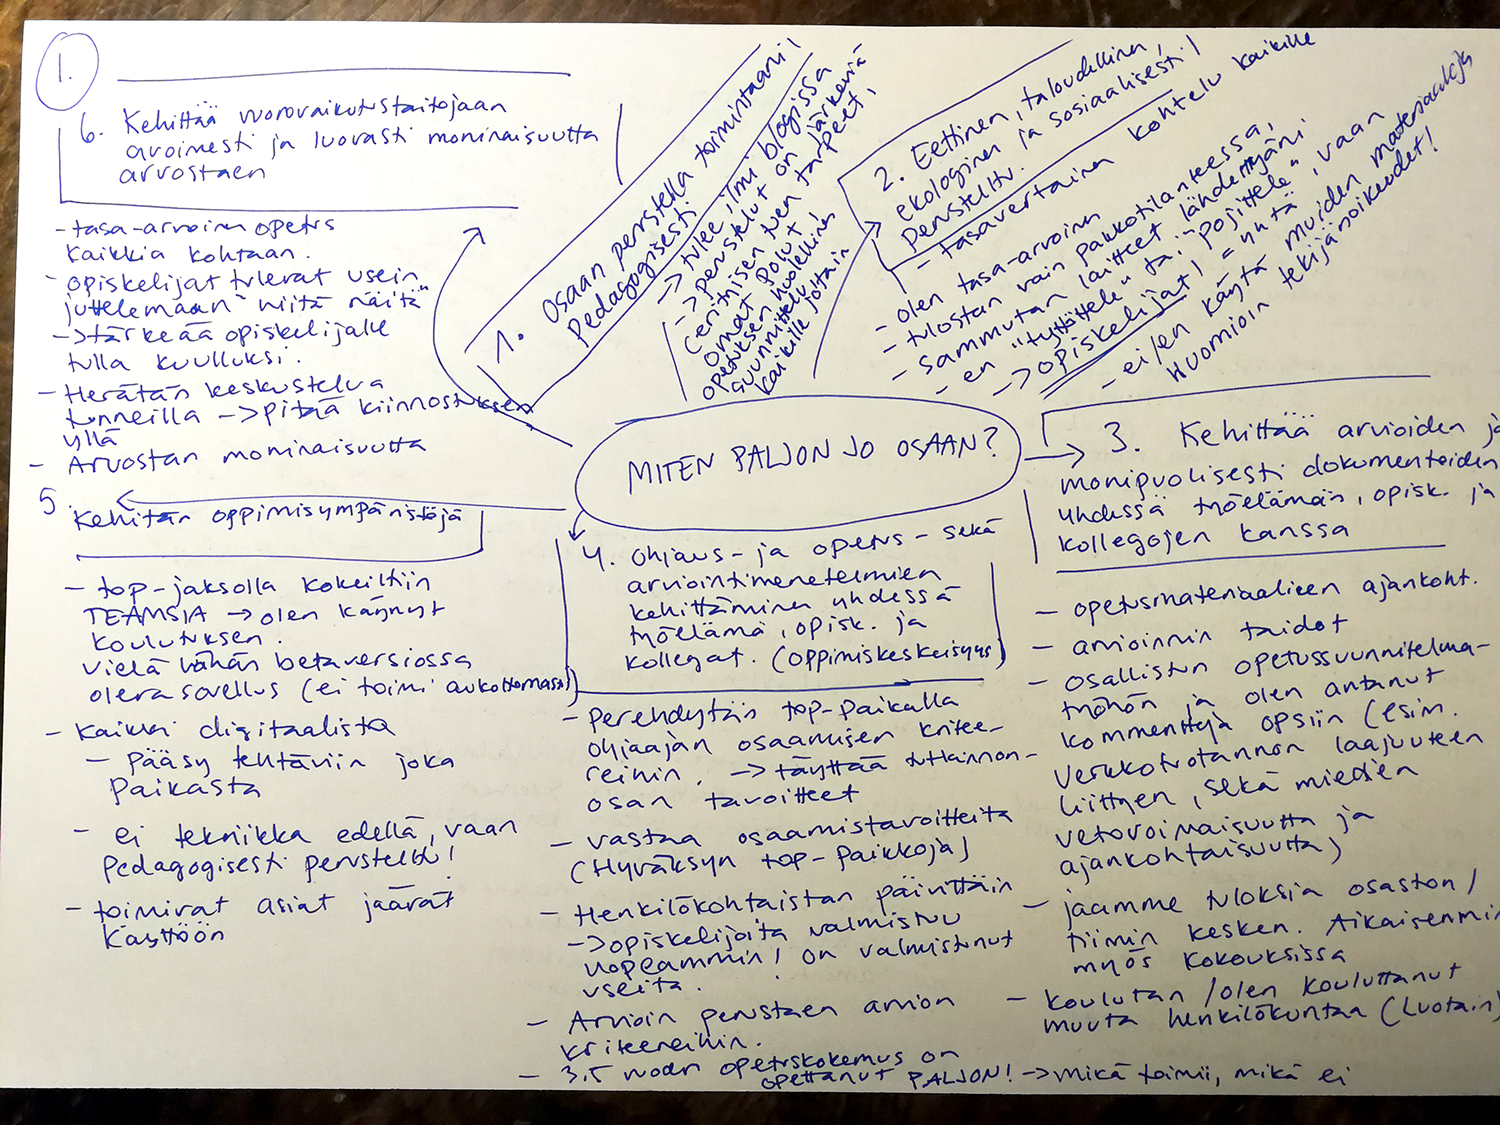 1.
6. Kehittää vuorovaikutustaitojaan
avoimesti ja luovasti moninaisuutta
arvostaen
- tasa-arvoinen opetus
kaikkia kohtaan.
- opiskelijat tulevat usein
juttelemaan "niitä näitä"
-> tärkeää opiskelijalle
tulla kuulluksi.
- Herätän keskustelua
tunneilla -> pitää kiinnostuksen
yllä
- Arvostan moninaisuutta
1. Osaan perustella toimintaani
Pedagogisesti
-> tulee ilmi blogissa
-> perustelut on järkeviä
(erityisen tuen tarpeet,
omat polut)
opetuksen huolellinen
suunnittelu
kaikille jotain
2. Eettinen, taloudellinen,
ekologinen ja sosiaalisesti
perusteltu.
- Tasavertainen kohtelu kaikille
- olen tasa-arvoinen
- tulostan vain pakkotilanteessa,
- sammutan laitteet lähdettyäni
- en "tyttöttele" tai "pojittele", vaan
-> opiskelijat! = yhtä
- ei/en käytä muiden materiaaleja
Huomioin tekijänoikeudet!
MITEN PALJON JO OSAAN?
3. Kehittää arvioiden ja
monipuolisesti dokumentoiden
yhdessä työelämän, opisk. ja
kollegojen kanssa
- opetusmateriaalien ajankoht.
- arvioinnin taidot
- osallistun opetussuunnitelma-
työhön ja olen antanut
kommentteja opsiin (esim.
verkkotuotannon laajuuteen
liittyen, sekä miedien
vetovoimaisuutta ja
ajankohtaisuutta)
- jaamme tuloksia osaston/
tiimin kesken. Aikaisemmin
myös kokouksissa
- koulutan/olen kouluttanut
muuta henkilökuntaa (Luotain)
4. Ohjaus- ja opetus- sekä
arviointimenetelmien
kehittäminen yhdessä
työelämä, opisk. ja
kollegat. (oppimiskeskeisyys)
- Perehdytän top-paikalla
ohjaajan osaamisen kritee-
reihin. -> täyttää tutkinnon-
osan tavoitteet
- vastaa osaamistavoitteita
(Hyväksyn top-paikkoja)
- Henkilökohtaistan päivittäin
-> opiskelijoita valmistuu
nopeammin! on valmistunut
useita.
- Arvioin perustaen arvion
kriteereihin.
- 3,5 vuoden opetuskokemus on
opettanut PALJON! -> mikä toimii, mikä ei
5. Kehitän oppimisympäristöjä
- top-jaksolla kokeiltiin
TEAMSIA -> olen käynyt
koulutuksen.
vielä vähän betaversiossa
oleva sovellus (ei toimi aukottomasti)
- Kaikki digitaalista
- Pääsy tehtäviin joka
paikasta
- ei tekniikka edellä, vaan
Pedagogisesti perusteltu!
- toimivat asiat jäävät
käyttöön